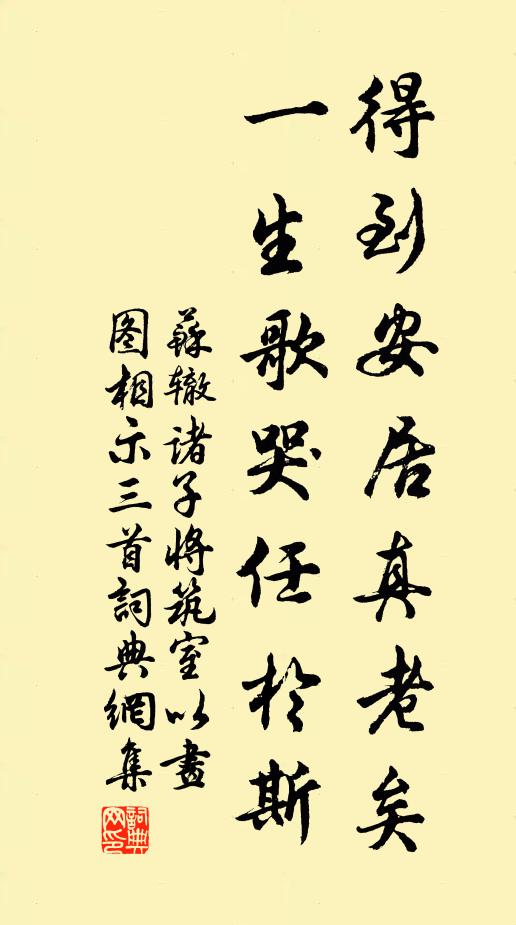 得到安居真老矣
一生歌哭任於斯
蘇辙諸子將筑室以畫
图相示三首詞典網集
詞典网印